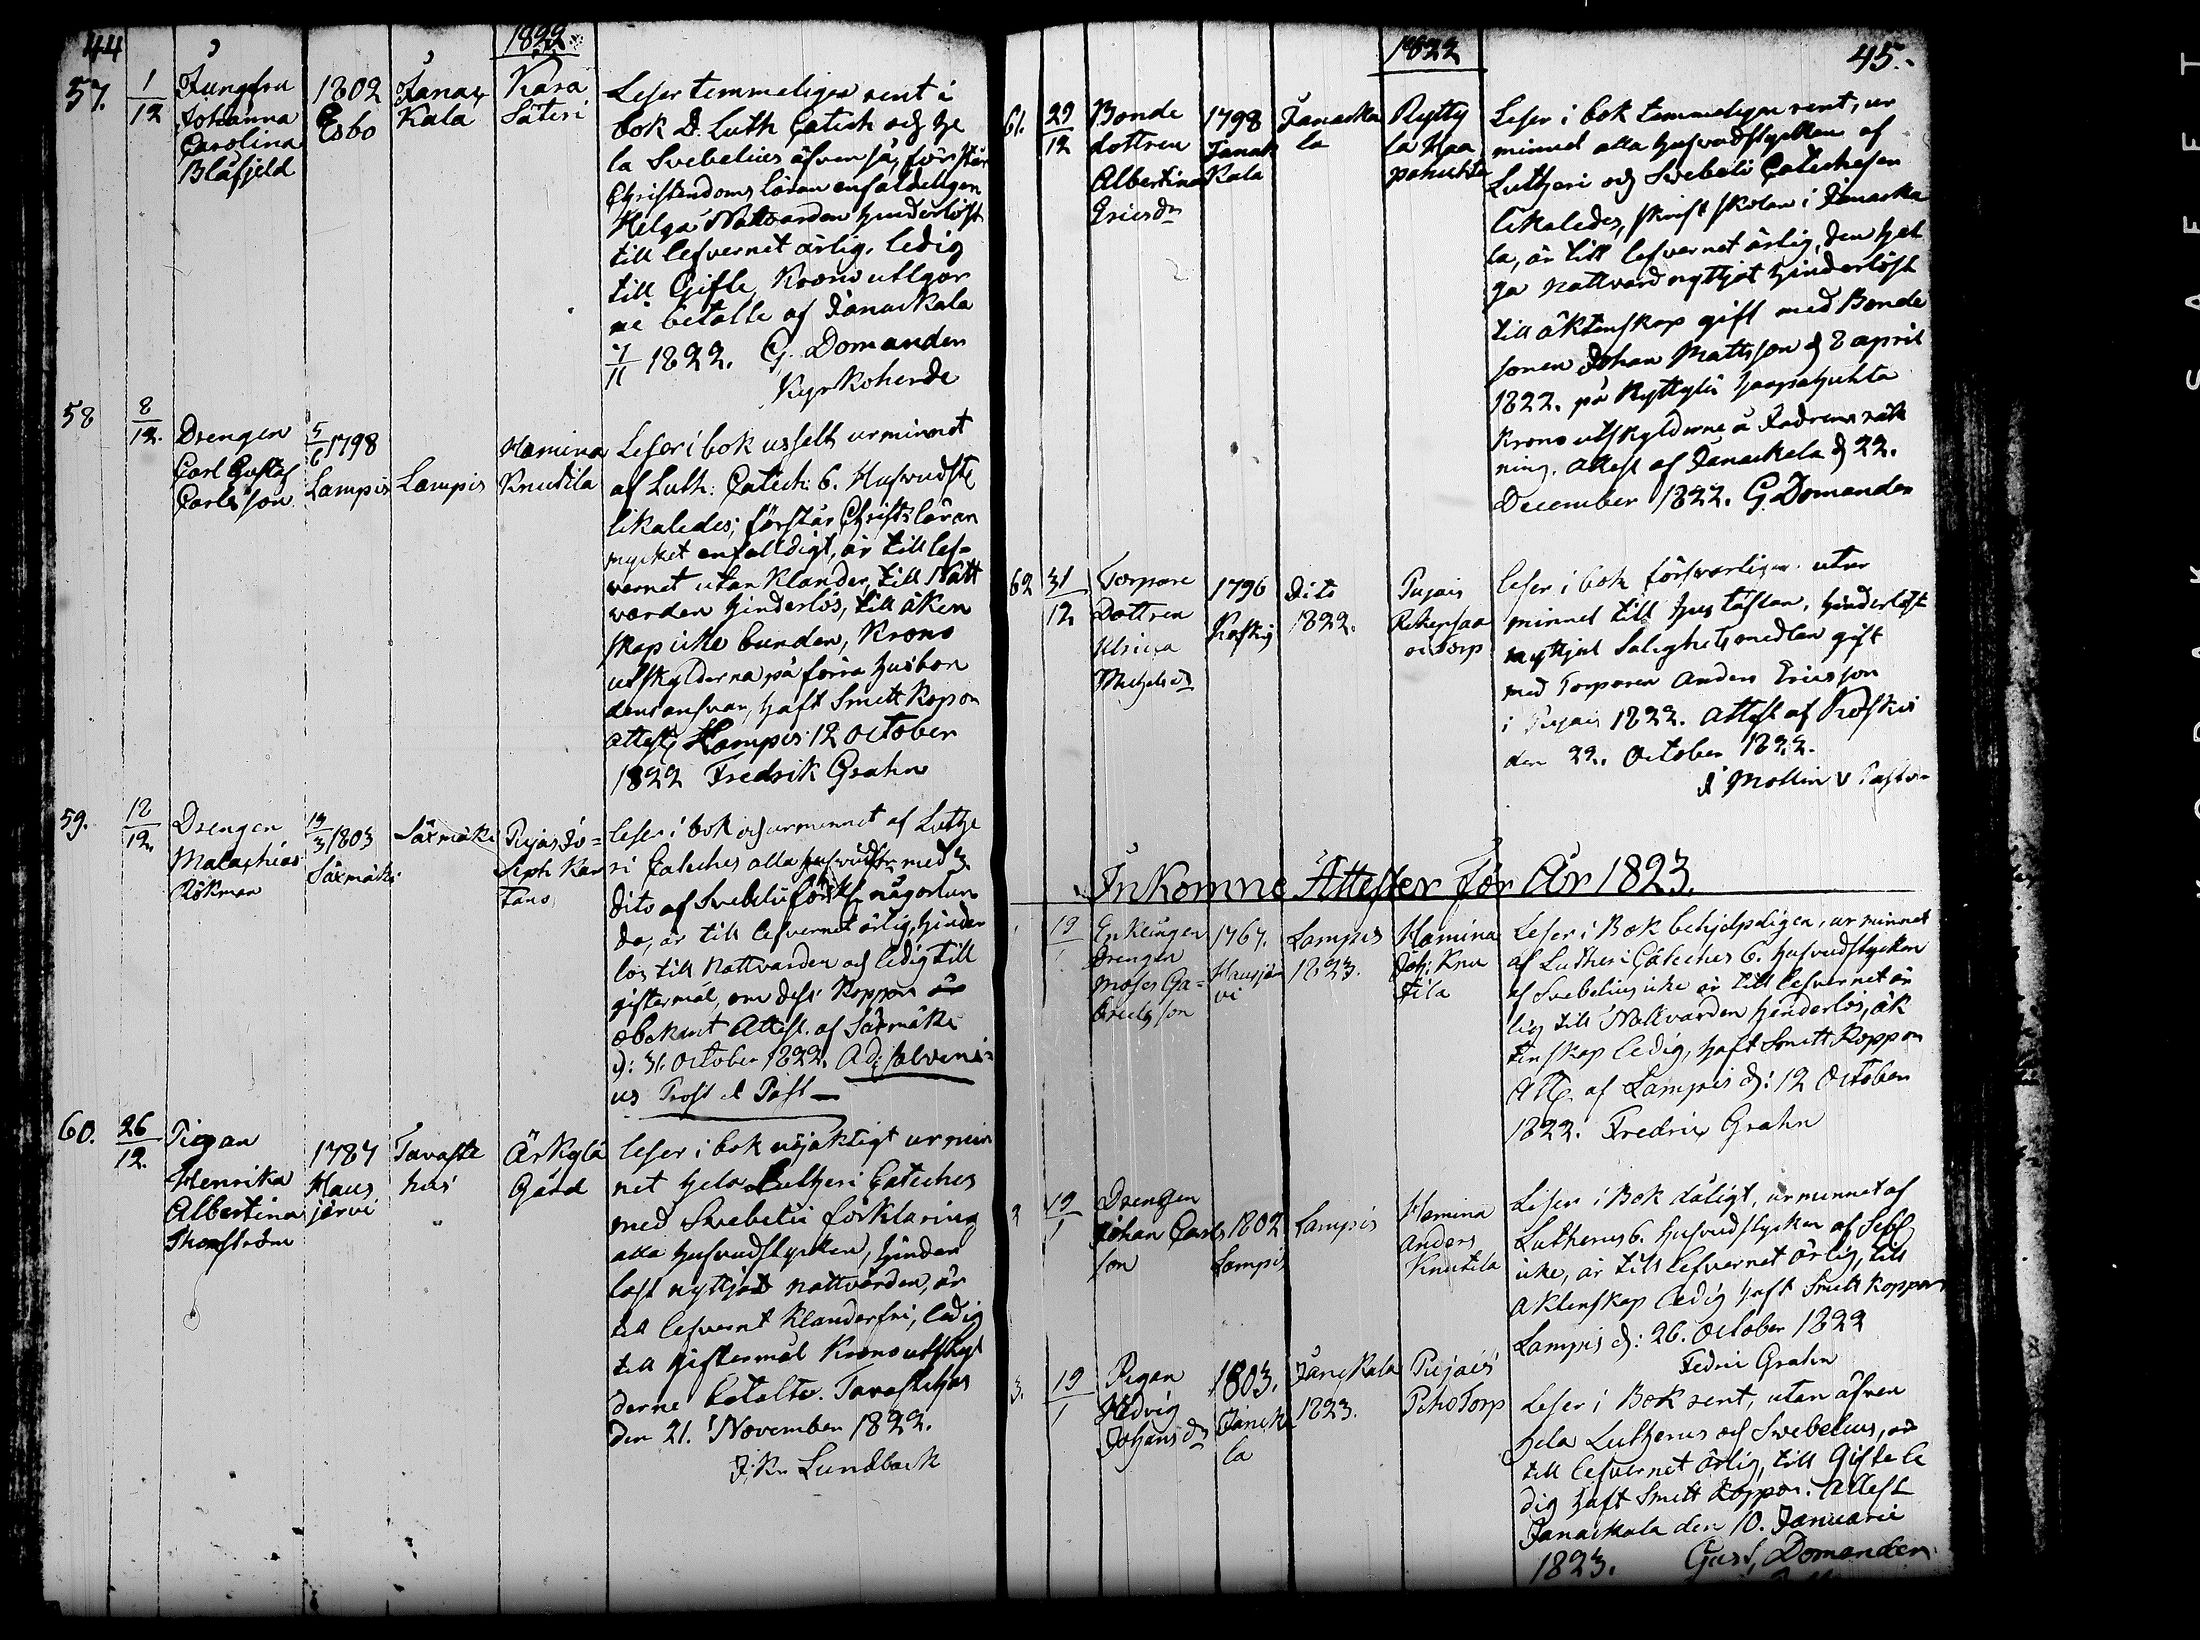 44
1822
57. 1/12 Jungfru Johanna Carolina Blåfjeld
1802 Esbo
Janak Kala
Kara Säteri
Leser temmeligen rent i
bok D. Luth Catech och he
la Svebelius äfven så, förstår
Christendoms läran enfaldeligen
Helga Nattvarden hinderlöst
till lefvernet ärlig, ledig
till Gifte, Krono utlgor
ne betalte af Janackala
7/11 1822. G. Domander
Kyrkoherde
58 8/12. Drengen Carl Gustaf Carlsson
5/6 1798 Lampis
Lampis
Hamina Knutila
Leser i bok usselt ur minnet
af Luth: Catech: 6. Hufvudst
likaledes; förstår Christ: läran
mycket enfalldigt, är till lef-
vernet utan klander, till Natt
varden hinderlös, till äken
skap icke bunden, Krono
utskylderna på förra husbon
dens ansvar, haft Smitt kopor
attest Lampis 12 October
1822 Fredrik Grahn
59. 18/12. Drengen Malachias Rökman
19/3 1803 Säxmäki
Säxmäki
Pujais Jo-
seph Kar
tano
leser i bok och ur minnet af Luthe
ri Cateches alla hufvudst: med
dito af Svebelii förkl: någorlun
da, är till lefvernet ärlig, hinder
lös till Nattvarden och ledig till
giftermål, om dess Koppor är
obekant Attest. af Säxmäki
d: 31. October 1822. Ad: Salveni-
us Prost & Past
60. 26/12. Pigan Henrika Albertina Thomström
1787 Haus järvi
Tavaste hus
Ärkylä Gård
leser i bok nöjaktigt ur min
net hela Lutheri Cateches
med Svebelii förklaring
alla hufvudstycken, hinder
löst nyttjat nattvarden, är
till lefvernet klanderfri, ledig
till giftermål Krono utskyl
derne betalte. Tavastehus
den 21. November 1822.
J: Kr Lundbäck
1822
45.
61. 29/12 Bonde dottren Albertina Ericsdr
1798 Janak Kala
Janacka la
Rytty lä Haa pahuhta
Leser i bok temmeligen rent, ur
minnet alla hufvudstycken af
Lutheri och Svebeli Catechesen
likaledes, skrift skolan i Janacka
la, är till lefvernet ärlig, den hel
ga nattvard nyttjat hinderlöst
till äktenskap gift med Bonde
sonen Johan Mattsson d 8 april
1822. på Ryttylä haapahuhta
Krono utskylderne å Fadrens räk
ning. attest af Janackala d 22.
December 1822. G. Domander
62 31/12 Torpare Dottren Ulrica Michelsdr
1796
Dito 1822.
Pujais
Torp
leser i bok försvarligen utur
minnet till hustaflan, hinderlöst
nyttjat Salighets medlen gift
med Torparen Anders Ericsson
i Pujais 1822. Attest af
den 22. October 1822.
J Mollin v Pastor
Inkomne Attester för År 1823.
19/1 Enklingen Drengen Moses Ga-
brielsson
1767. Hausjär
vi
Lampis 1823.
Hamina Joh: Knu
tila
Leser i Bok behjelpeligen, ur minnet
af Lutheri Cateches 6. hufvudstycken
af Svebelius icke är till lefvernet är
lig till Nattvarden hinderlös, äk
tenskap ledig, haft Smitt Koppor
Att: af Lampis d: 12 October
1822. Fredric Grahn
2 19/1 Drengen Johan Carls
son
1802 Lampis
Lampis
Hamina Anders Knutila
Leser i Bok dåligt, ur minnet af
Lutherus 6. hufvudstycken af Sebel
icke, är till lefvernet ärlig, till
äktenskap ledig haft Smitt koppor
Lampis d: 26. October 1822
Fedric Grahn
3. 19/1 Pigan Hedvig Johansdr
1803. Janacka
la
Janckala 1823.
Pujais Torp
Leser i Bok rent, utan äfven
hela Lutherus och Svebelius, är
till lefvernet ärlig, till Gifte le
dig haft Smitt Koppor. Attest
Janackala den 10. Januarii
1823. Gust. Domander